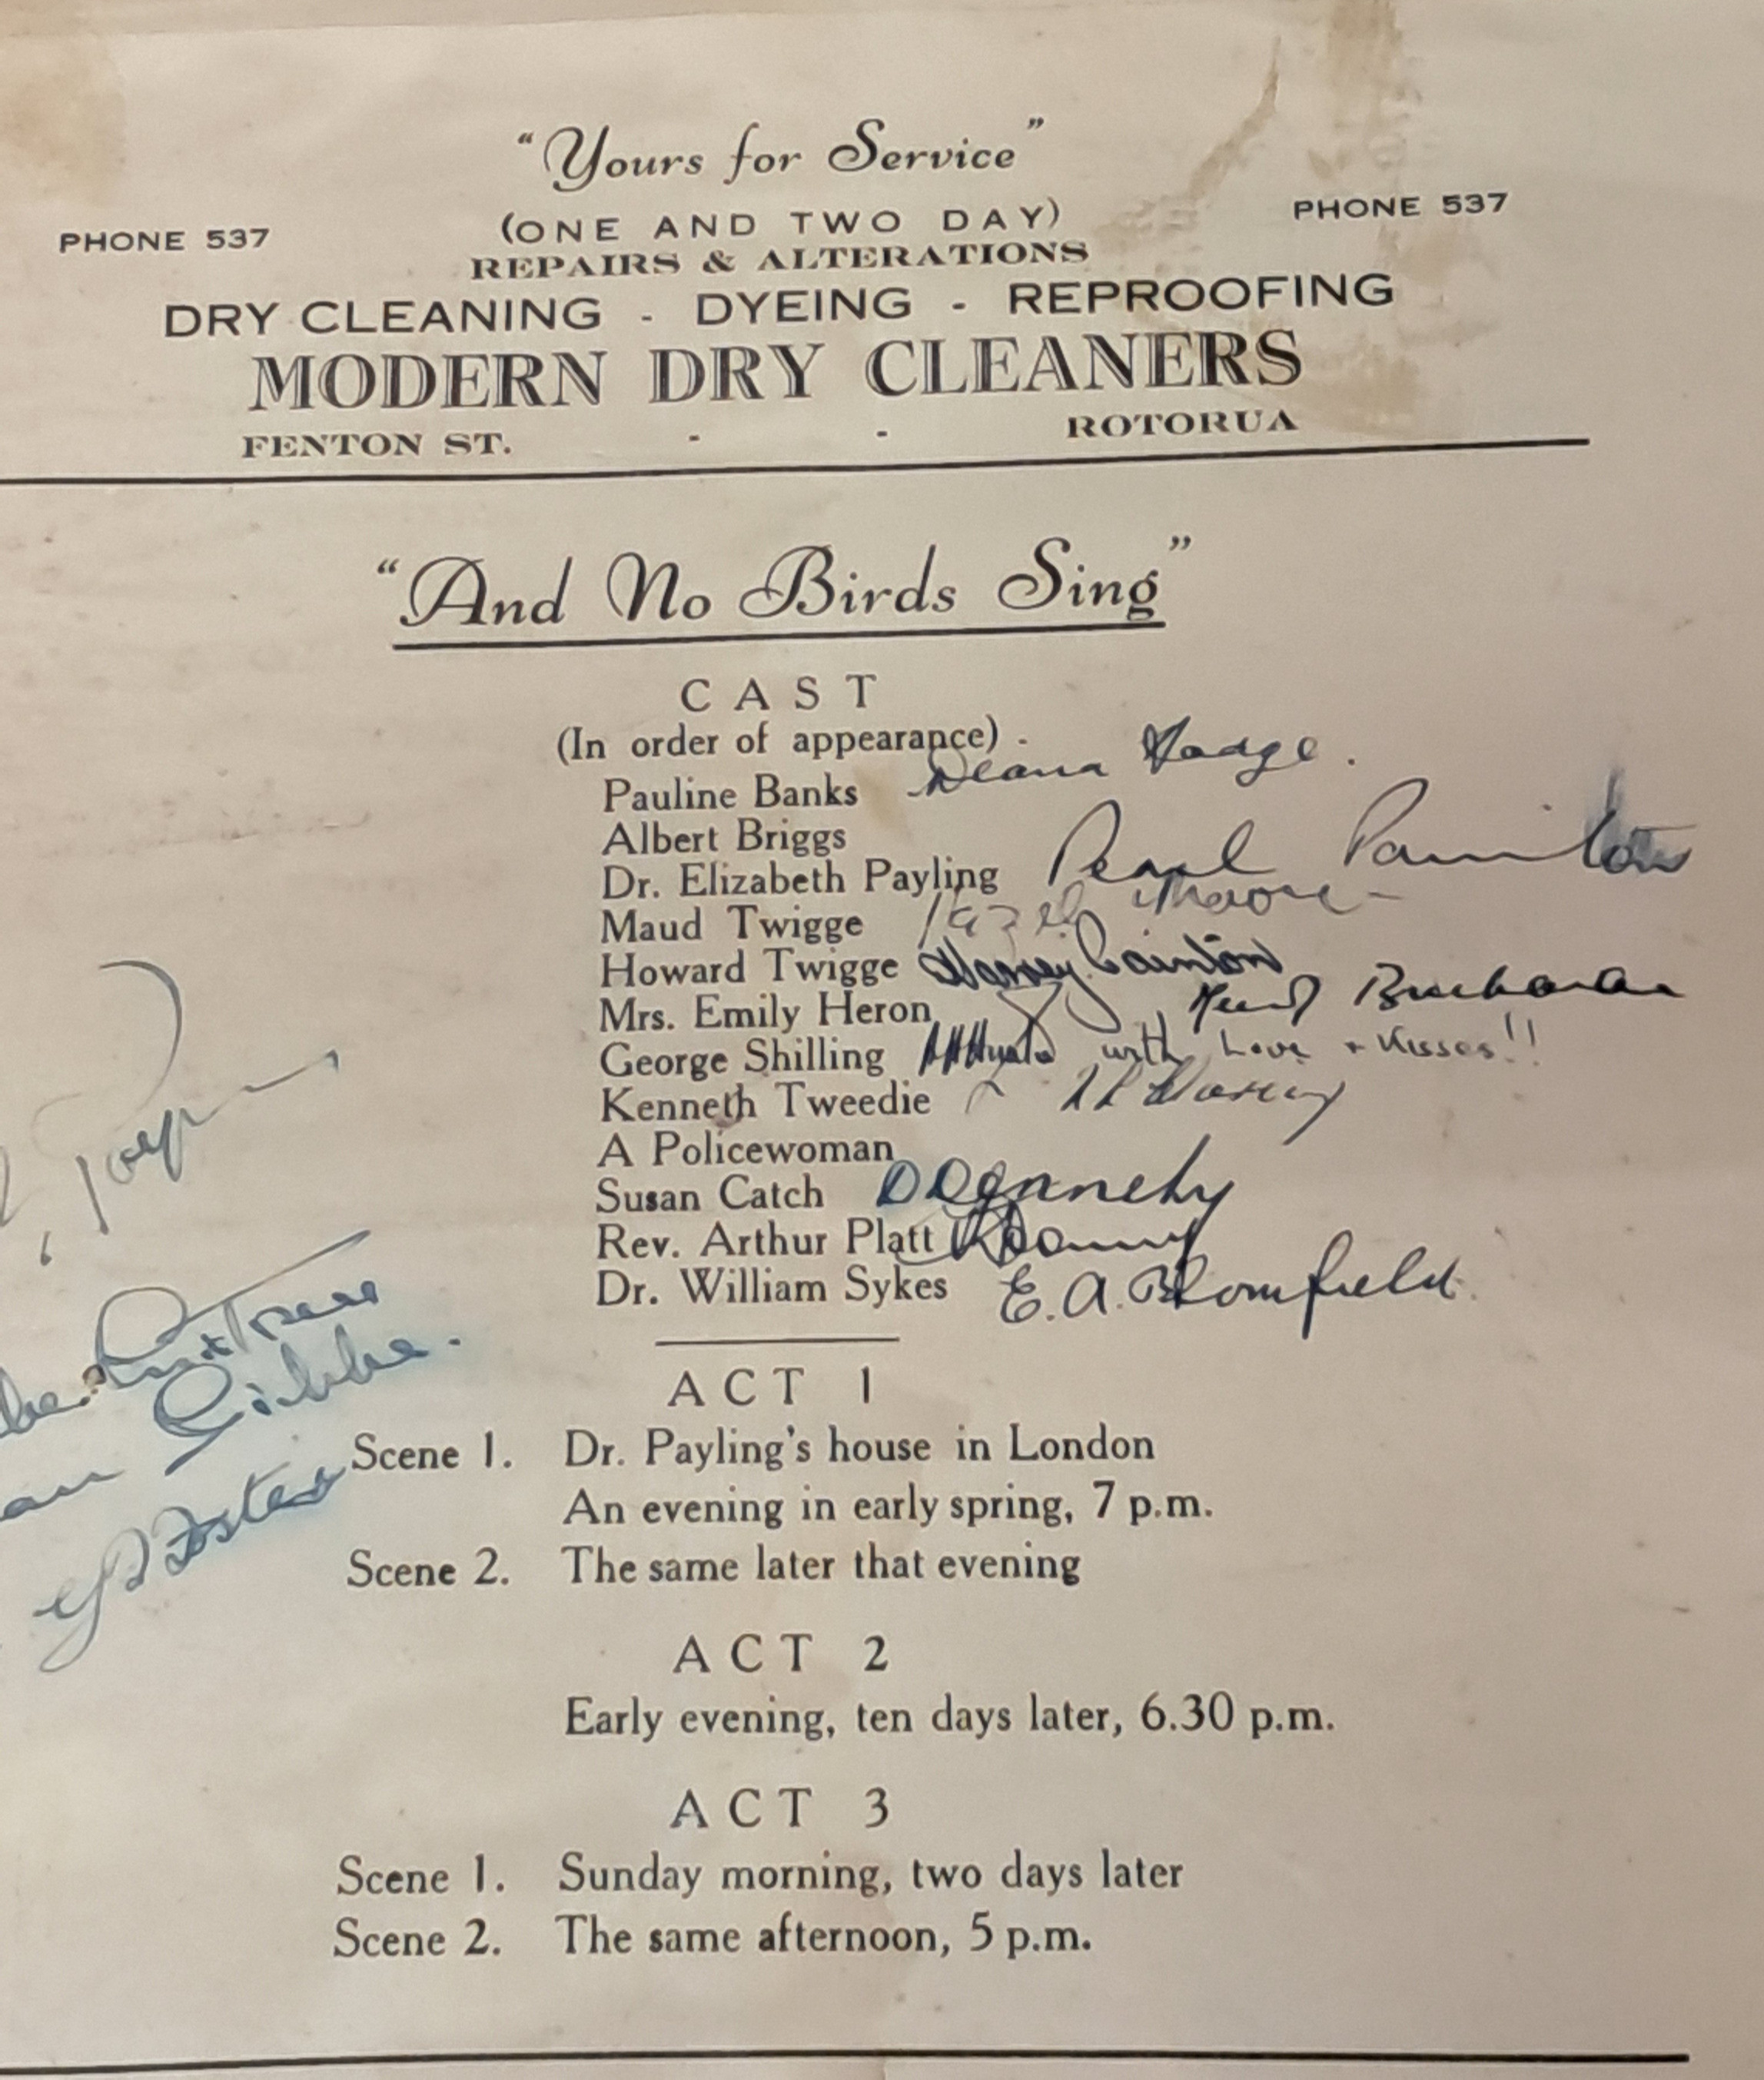 "Yours for Service"
PHONE 537 (ONE AND TWO DAY) PHONE 537
REPAIRS & ALTERATIONS
DRY CLEANING - DYEING - REPROOFING
MODERN DRY CLEANERS
FENTON ST. - - ROTORUA
"And No Birds Sing"
CAST
(In order of appearance)
Pauline Banks
Albert Briggs
Dr. Elizabeth Payling Pearl
Maud Twigge Hazel Moore
Howard Twigge
Mrs. Emily Heron Buchanan
George Shilling with Love + Kisses!!
Kenneth Tweedie
A Policewoman
Susan Catch
Rev. Arthur Platt
Dr. William Sykes E. A. Blomfield.
ACT 1
Scene 1. Dr. Payling's house in London
An evening in early spring, 7 p.m.
Scene 2. The same later that evening
ACT 2
Early evening, ten days later, 6.30 p.m.
ACT 3
Scene 1. Sunday morning, two days later
Scene 2. The same afternoon, 5 p.m.